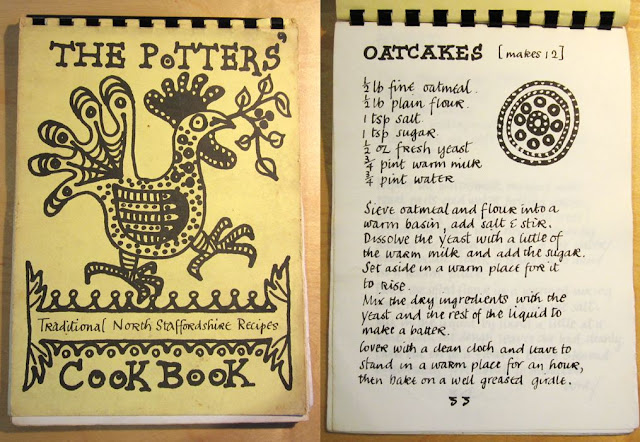 THE POTTERS'
Traditional North Staffordshire Recipes
COOK BOOK
OATCAKES [makes 12]
½ lb fine oatmeal.
½ lb plain flour.
1 tsp salt.
1 tsp sugar.
½ oz fresh yeast
¾ pint warm milk
¾ pint water
Sieve oatmeal and flour into a
warm basin, add salt & stir.
Dissolve the yeast with a little of
the warm milk and add the sugar.
Set aside in a warm place for it
to rise.
Mix the dry ingredients with the
yeast and the rest of the liquid to
make a batter.
Cover with a clean cloth and leave to
stand in a warm place for an hour,
then bake on a well greased girdle.
33